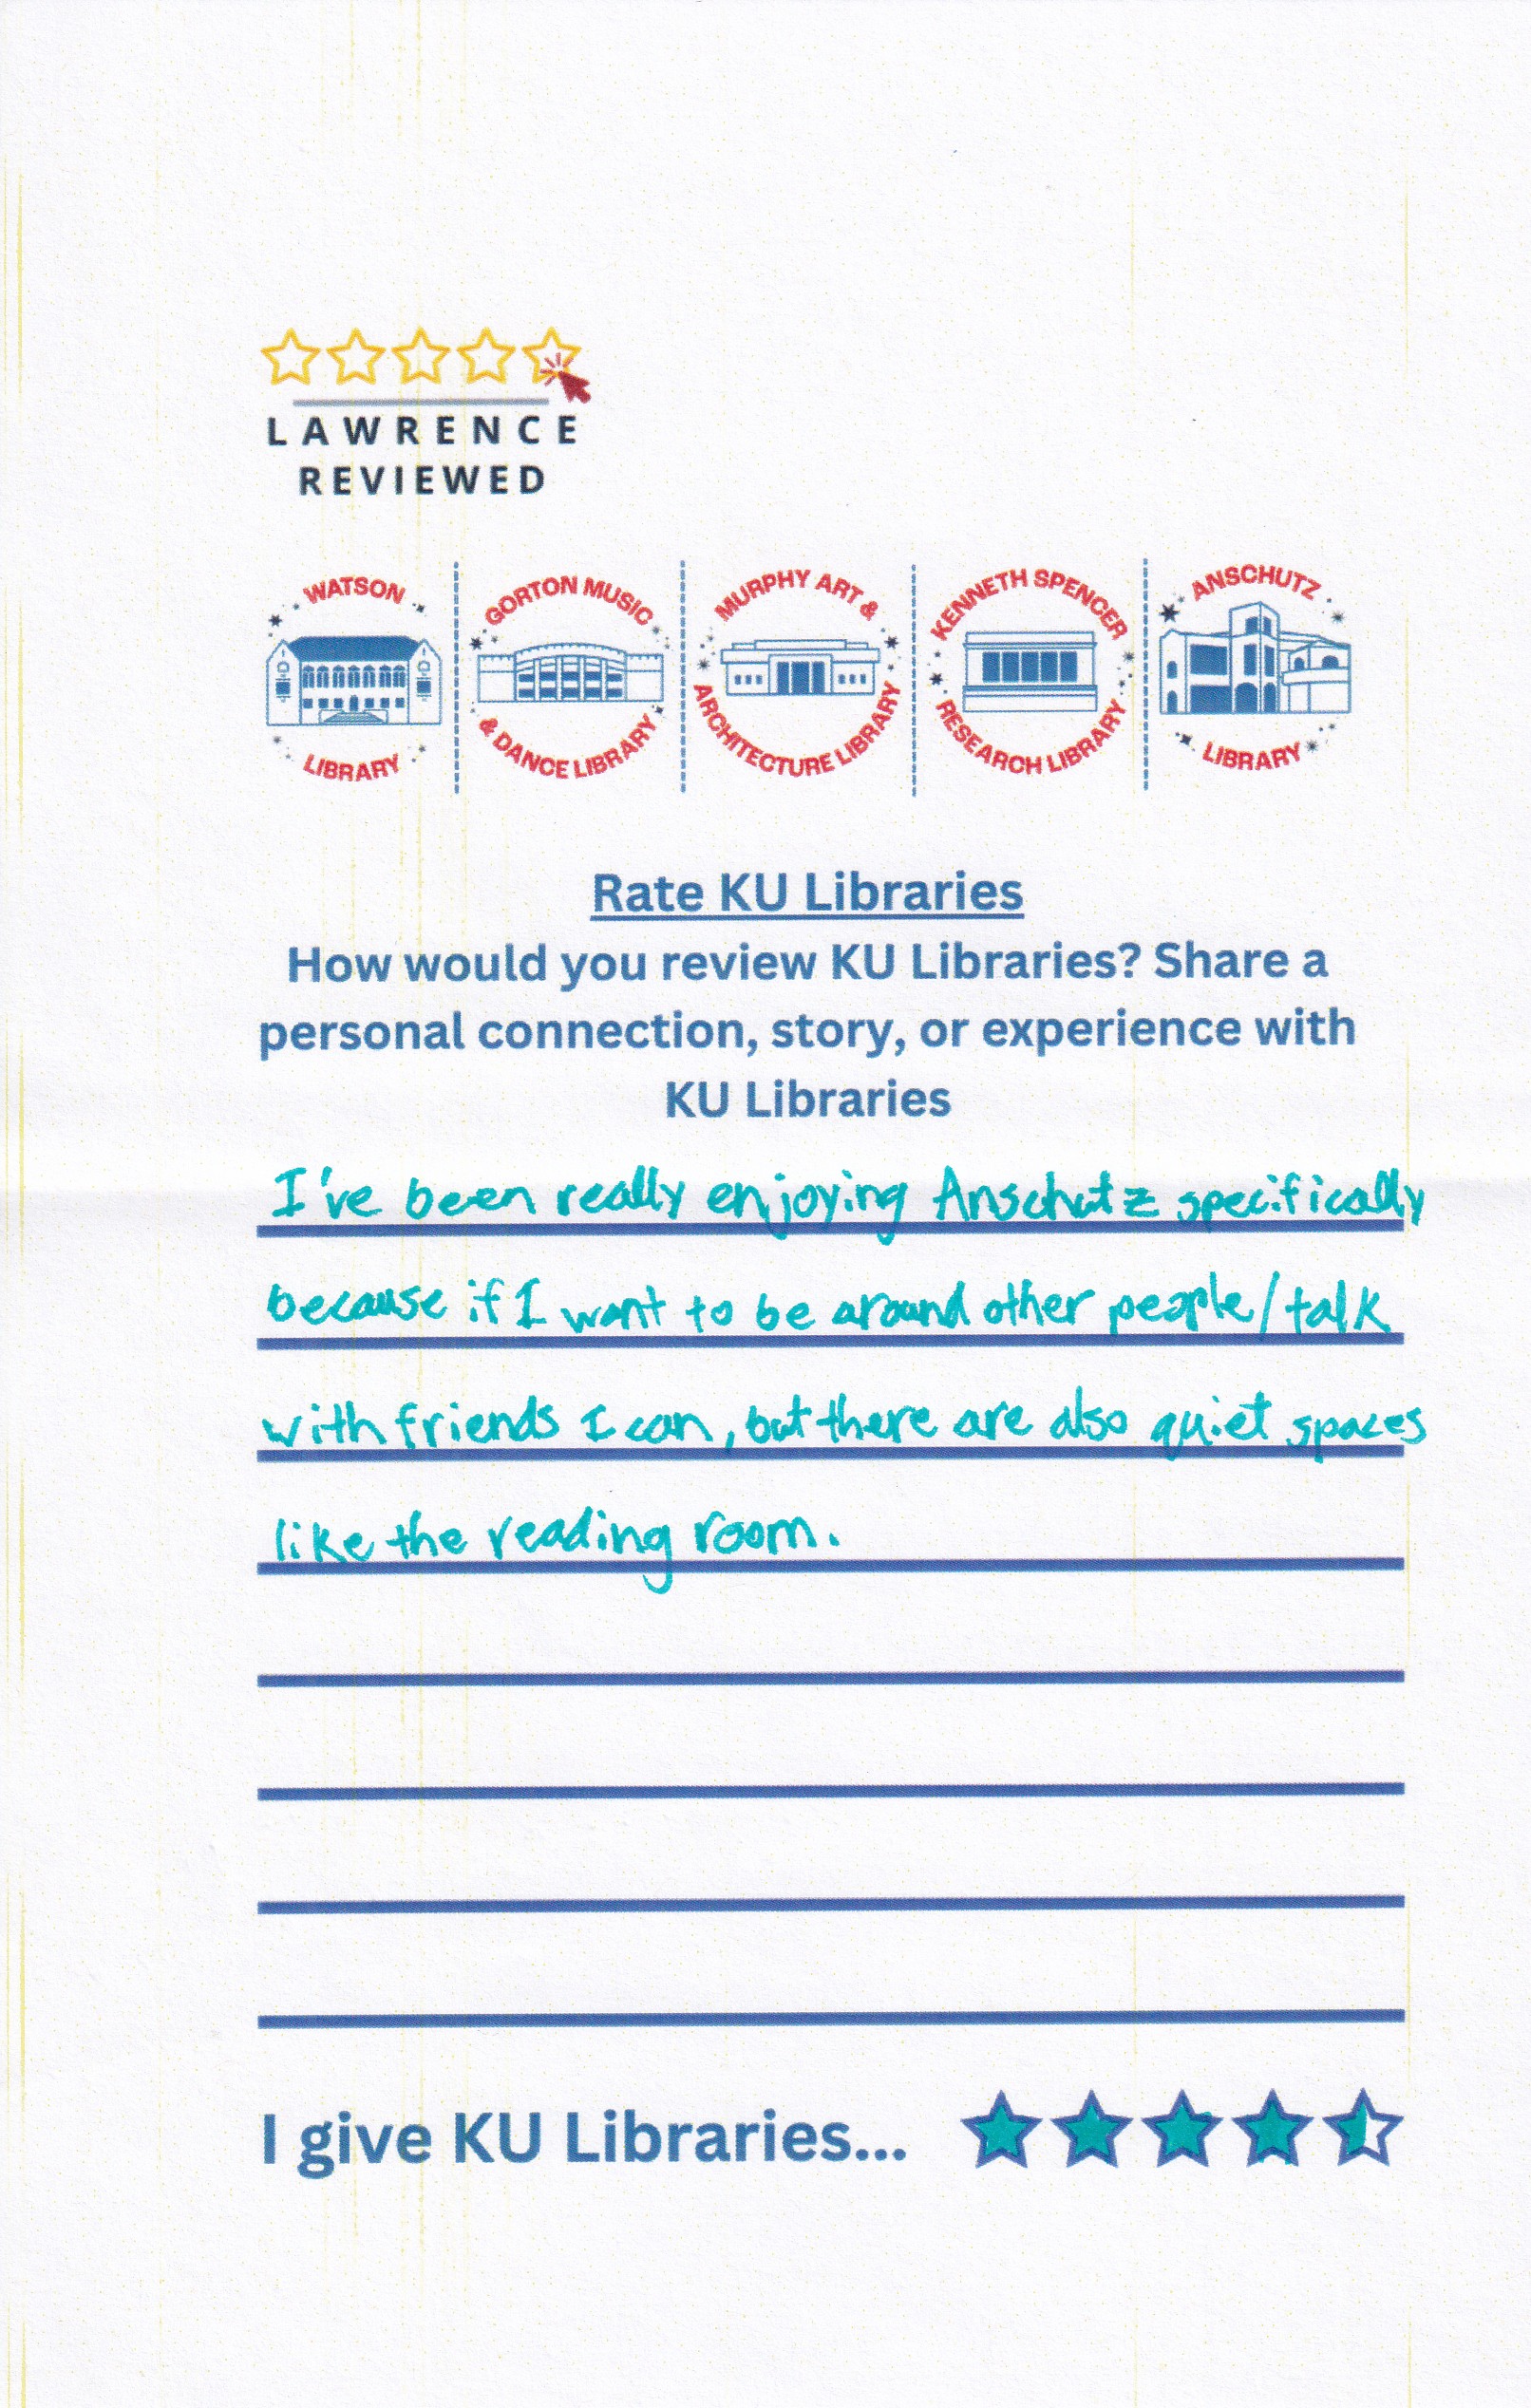 LAWRENCE
REVIEWED
WATSON
LIBRARY
GORTON MUSIC
& DANCE LIBRARY
MURPHY ART &
ARCHITECTURE LIBRARY
KENNETH SPENCER
RESEARCH LIBRARY
ANSCHUTZ
LIBRARY
Rate KU Libraries
How would you review KU Libraries? Share a
personal connection, story, or experience with
KU Libraries
I've been really enjoying Anschutz specifically
because if I want to be around other people/talk
with friends I can, but there are also quiet spaces
like the reading room.
I give KU Libraries...